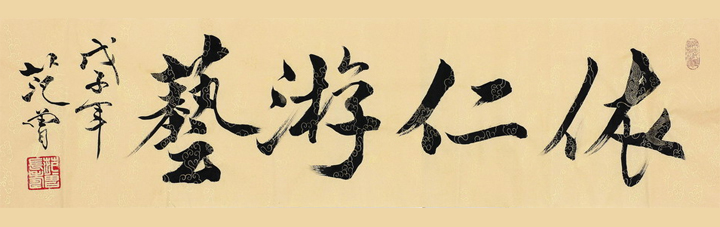 依仁游藝
戊子年
范曾